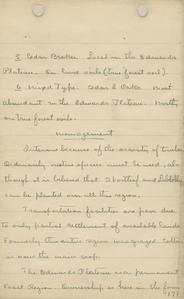 5 Cedar Brakes. Local in the Edwards
Plateau. On lime soils (true forest soil).
6 Mixed Type. Cedar & Oaks. Most
abundant in the Edwards Plateau. Mostly
on true forest soils.
Management
Intensive because of the scarcity of timber
Ordinarily native species must be used, al-
though it is believed that Shortleaf and Loblolly
can be planted over all this region.
Transportation facilities are poor due
to only partial settlement of available lands
Formerly this entire region was grazed. Cotton
is now the main crop.
The Edwards Plateau is a permanent
Forest Region. Ownership is here in the form